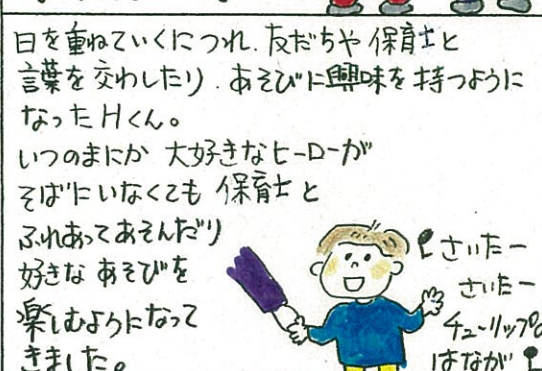 日を重ねていくにつれ、友だちや保育士と
言葉を交わしたり、あそびに興味を持つように
なったHくん。
いつのまにか 大好きなヒーローが
そばにいなくても 保育士と
ふれあってあそんだり
好きな あそびを
楽しむようになって
きました。
さいたー
さいたー
チューリップの
はなが